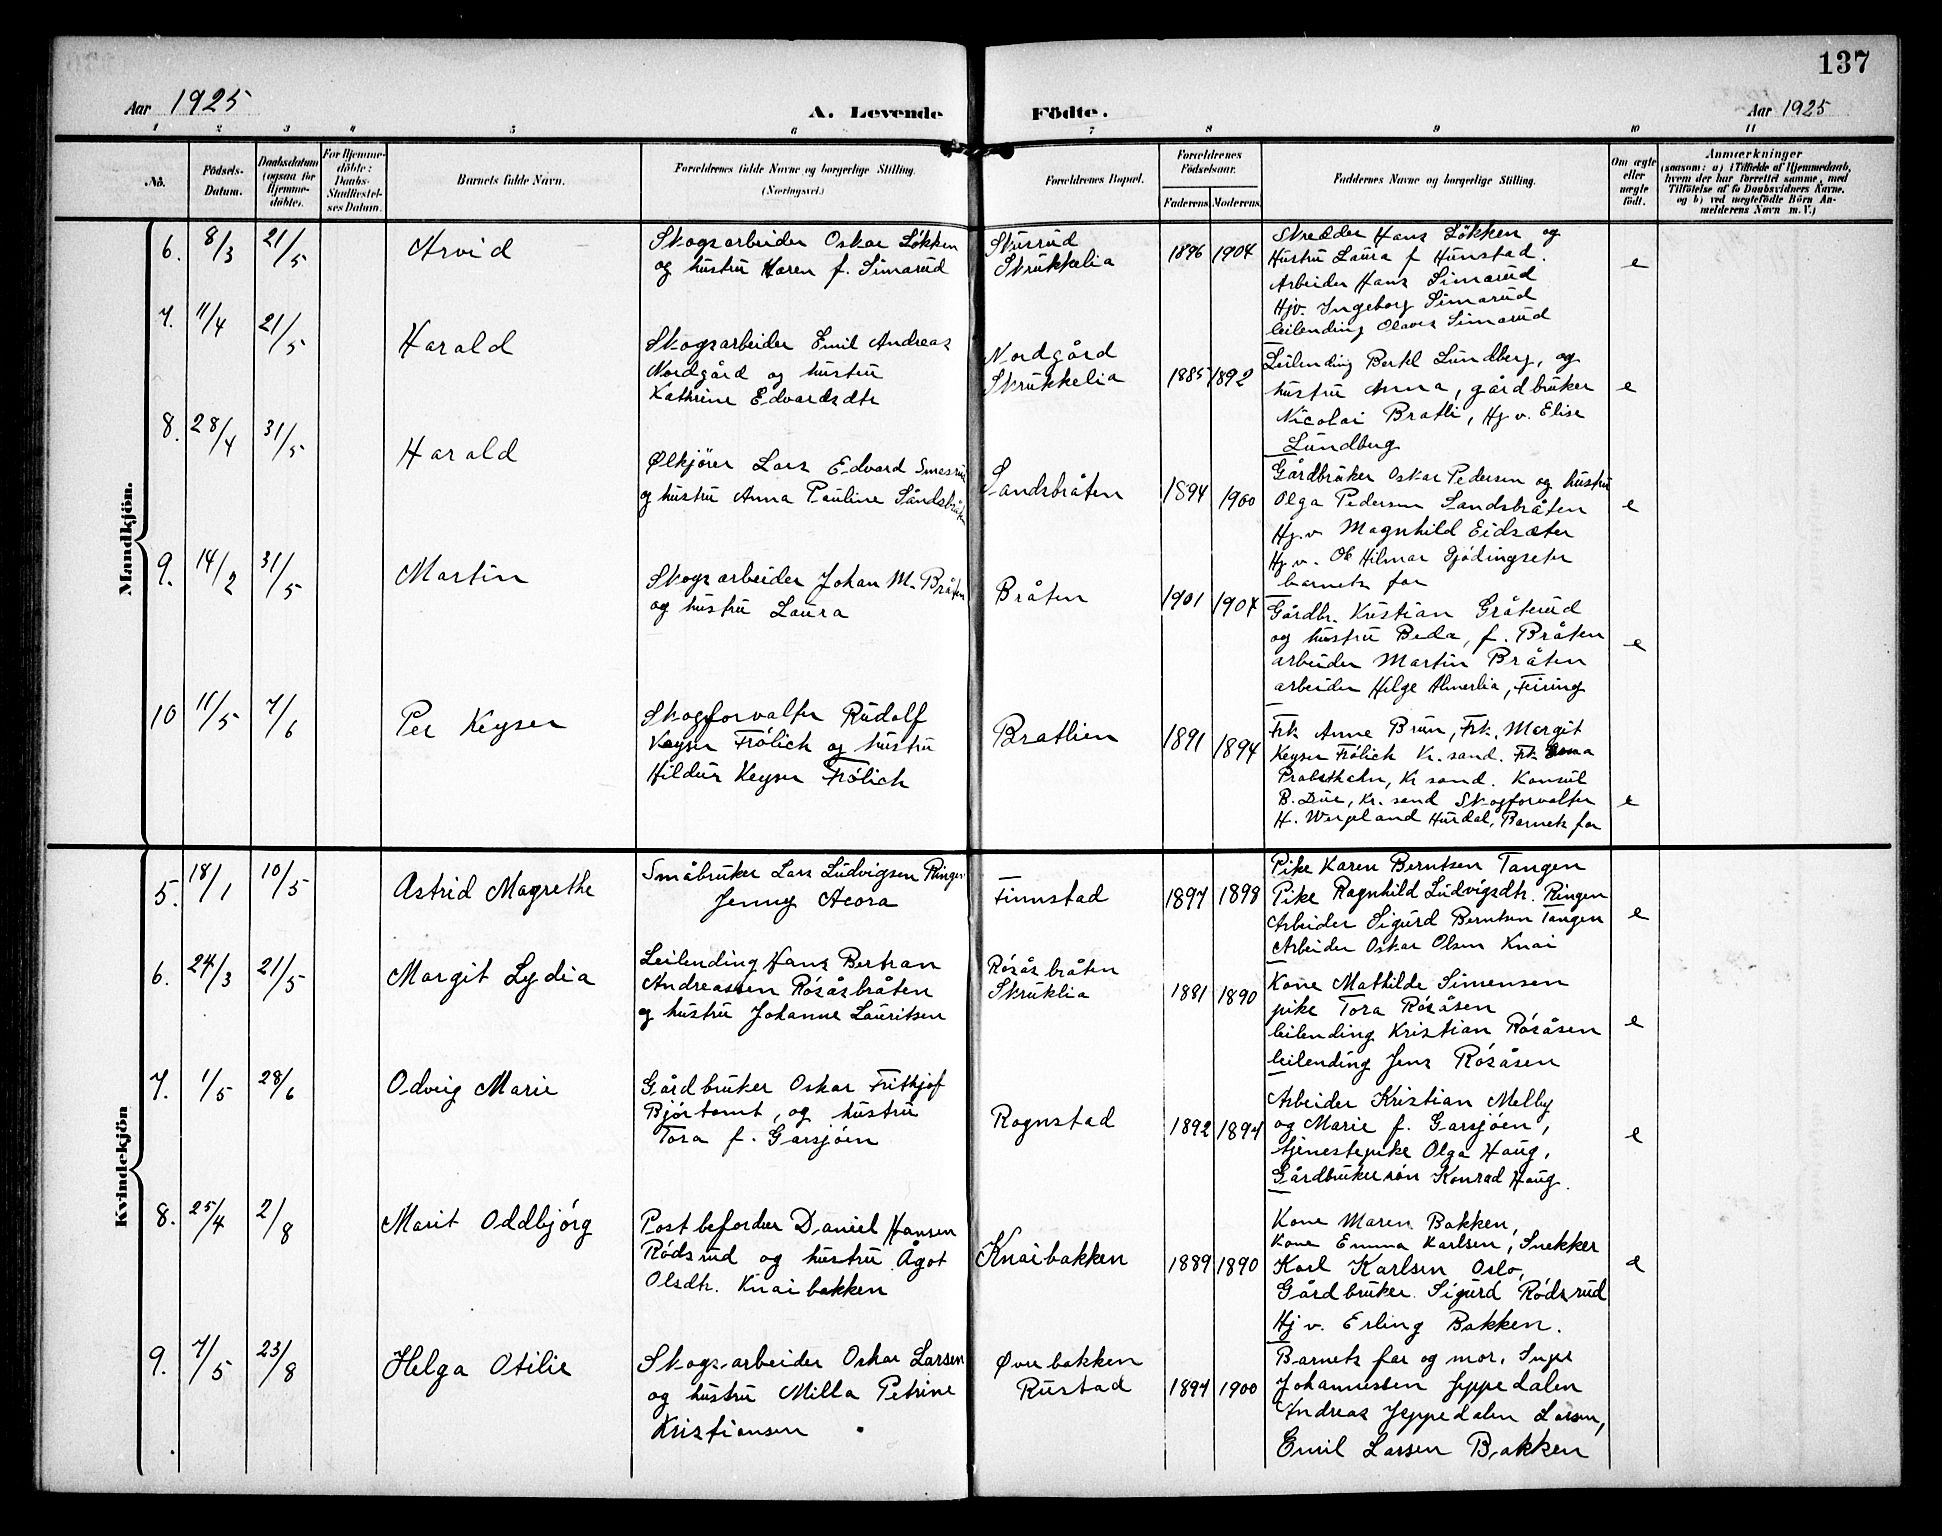 137
Aar 1925
A. Levende Födte.
Aar 1925
1 2 3 4 5 6 7 8 9 10 11
No.
Födsels-Datum.
Daabsdatum (ogsaa for Hjemmedöbte).
For Hjemmedöbte: Daabs-Stadfæstelses Datum.
Barnets fulde Navn.
Forældrenes fulde Navne og borgerlige Stilling.
(Næringsvei.)
Forældrenes Bopæl.
Forældrenes Födselsaar.
Faderens Moderens
Faddernes Navne og borgerlige Stilling.
Om ægte eller uægte födt.
Anmærkninger
(saasom: a) i Tilfælde af Hjemmedaab,
hvem der har forrettet samme, med
Tilföielse af to Daabsvidners Navne,
og b) ved uægtefödte Börn An-
melderens Navn m. V.)
Mandkjön.
6. 8/3 21/5 Arvid
Skogsarbeider Oskar Løkken
og hustru Karen f. Simarud
Skrukkelia
1896 1904
Skredder Hans Løkken og
Hustru Laura f Hunstad.
Arbeider Hans Simarud
Hjv. Ingeborg Simarud
leilending Olaves Simarud
e
7. 11/4 21/5 Harald
Skogsarbeider Emil Andreas
Nordgård og hustru
Kathrine Edvardsdtr
Nordgård
Skrukkelia
1885 1892
Leilending Bertel Lundberg, og
hustru Anna, gårdbruker
Nicolai Bratli, Hj.v. Elise
Lundberg
e
8. 28/4 31/5 Harald
Ølkjører Lars Edvard
og hustru Anna Pauline Sandsbråten
Sandsbråten
1894 1900
Gårdbruker Oskar Pedersen og hustru
Olga Pedersen Sandsbråten
Hj.v. Magnhild Eidsæter
Hj.v. Ole Hilmar Gjødingseter
barnets far
e
9. 14/2 31/5 Martin
Skogsarbeider Johan M. Bråten
og hustru Laura
Bråten
1901 1904
Gårdbr. Kristian Gråterud
og hustru Beda, f. Bråten
arbeider Martin Bråten
arbeider Helge Almerlia, Feiring
e
10 11/5 7/6 Per Keyser
Skogforvalter Rudolf
Keyser Frölich og hustru
Hildur Keyser Frölich
Bratlien
1891 1894
Frk. Anne Brun, Frk. Margit
Keyser Frölich Kr. sand. Frk.
Kr sand. Konsul
B. Due, Kr. sand Skogforvalter
H. Wergeland Hurdal, Barnets far
e
Kvindekjön
5. 18/1 10/5 Astrid Magrethe
Småbruker Lars Ludvigsen Ringen
Jenny Aeora
Finnstad
1897 1898
Pike Karen Berntsen Tangen
Pike Ragnhild Ludvigsdtr. Ringen
Arbeider Sigurd Berntsen Tangen
Arbeider Oskar Olsen Knai
e
6. 24/3 21/5 Margit Lydia
Leilending Hans Bertran
Andreassen Røsåsbråten
og hustru Johanne Lauritsen
Røsåsbråten
Skruklia
1881 1890
Kone Mathilde Simensen
pike Tora Røsåsen
leilending Kristian Røsåsen
leilending Jens Røsåsen
e
7. 1/5 28/6 Odveig Marie
Gårdbruker Oskar Frithjof
Bjørtomt, og hustru
Tora f. Garsjøen
Rognstad
1892 1894
Arbeider Kristian Melby
og Marie f. Garsjøen,
tjenestepike Olga Haug,
Gårdbrukersøn Konrad Haug.
e
8. 25/4 2/8 Marit Oddbjørg
Postbefordrer Daniel Hansen
Rødsrud og hustru Ågot
Olsdtr. Knaibakken
Knaibakken
1889 1890
Kone Maren Bakken,
Kone Emma Karlsen, Snekker
Karl Karlsen Oslo,
Gårdbruker Sigurd Rødsrud
Hj v. Erling Bakken.
e
9. 7/5 23/8 Helga Otilie
Skogsarbeider Oskar Larsen
og hustru Milla Petrine
Kristiansen
Øvrebakken
Rustad
1894 1900
Barnets far og mor, Inger
Johannessen Jeppedalen
Andreas Jeppedalen Larsen,
Emil Larsen Bakken